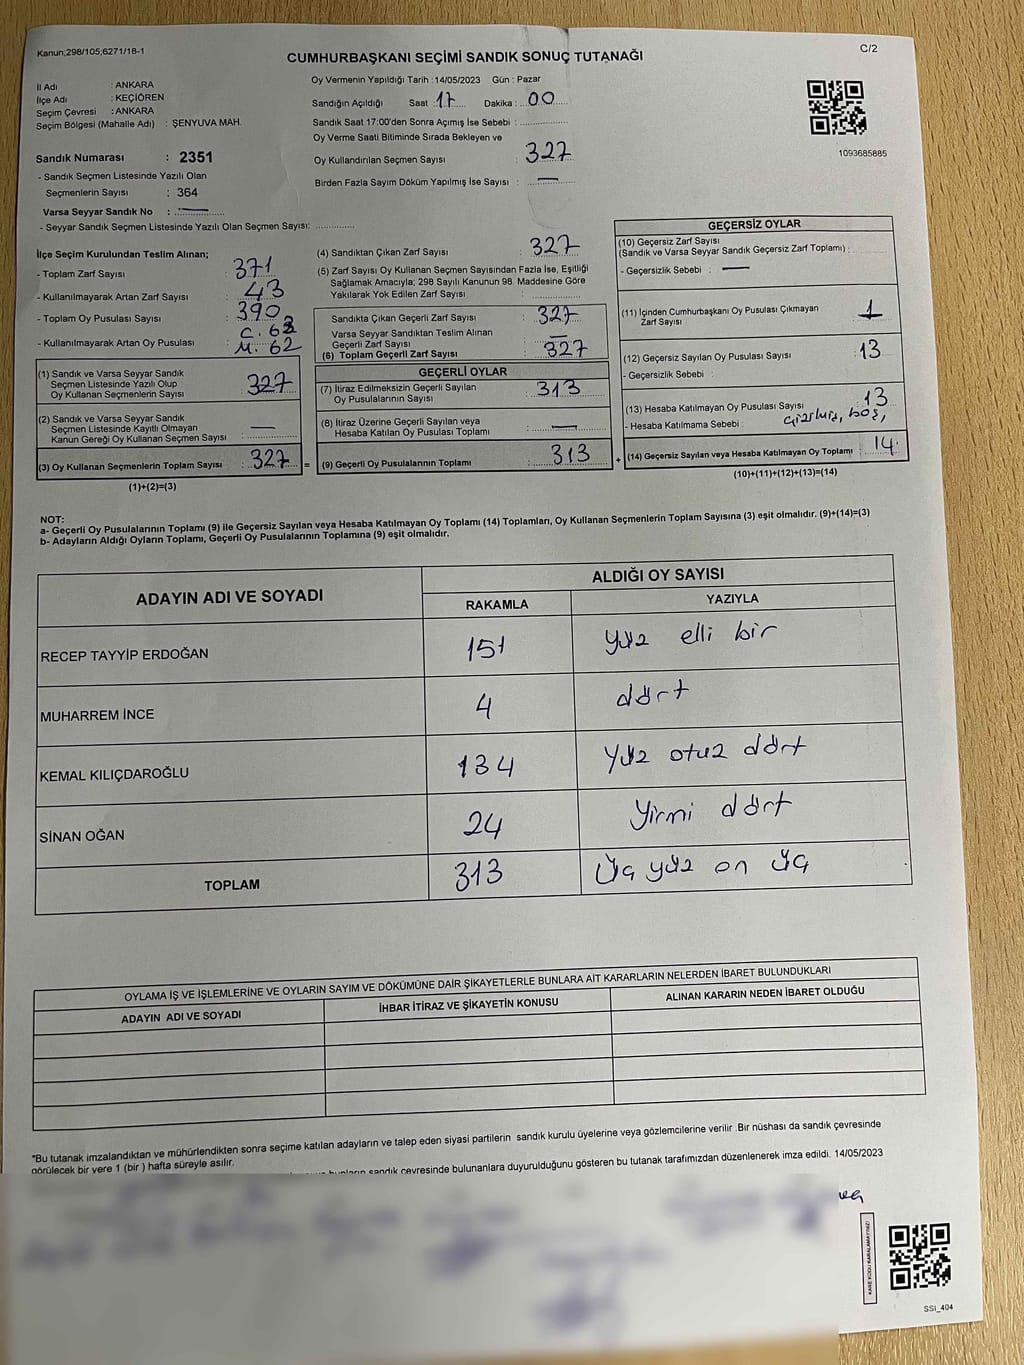 Kanun;298/105;6271/18-1
C/2
CUMHURBAŞKANI SEÇİMİ SANDIK SONUÇ TUTANAĞI
İl Adı : ANKARA
İlçe Adı : KEÇİÖREN
Seçim Çevresi : ANKARA
Seçim Bölgesi (Mahalle Adı) : ŞENYUVA MAH.
Sandık Numarası : 2351
- Sandık Seçmen Listesinde Yazılı Olan
Seçmenlerin Sayısı : 364
Varsa Seyyar Sandık No : —
- Seyyar Sandık Seçmen Listesinde Yazılı Olan Seçmen Sayısı: ..............
Oy Vermenin Yapıldığı Tarih : 14/05/2023 Gün : Pazar
Sandığın Açıldığı Saat : 17 Dakika : 00
Sandık Saat 17:00'den Sonra Açımış İse Sebebi : ..............
Oy Verme Saati Bitiminde Sırada Bekleyen ve
Oy Kullandırılan Seçmen Sayısı : 327
Birden Fazla Sayım Döküm Yapılmış İse Sayısı : —
1093685885
İlçe Seçim Kurulundan Teslim Alınan;
- Toplam Zarf Sayısı : 371
- Kullanılmayarak Artan Zarf Sayısı : 43
- Toplam Oy Pusulası Sayısı : 390
- Kullanılmayarak Artan Oy Pusulası : C. 63
M. 62
(1) Sandık ve Varsa Seyyar Sandık
Seçmen Listesinde Yazılı Olup
Oy Kullanan Seçmenlerin Sayısı : 327
(2) Sandık ve Varsa Seyyar Sandık
Seçmen Listesinde Kayıtlı Olmayan
Kanun Gereği Oy Kullanan Seçmen Sayısı : —
(3) Oy Kullanan Seçmenlerin Toplam Sayısı : 327 =
(1)+(2)=(3)
(4) Sandıktan Çıkan Zarf Sayısı : 327
(5) Zarf Sayısı Oy Kullanan Seçmen Sayısından Fazla İse, Eşitliği
Sağlamak Amacıyla; 298 Sayılı Kanunun 98. Maddesine Göre
Yakılarak Yok Edilen Zarf Sayısı : ..............
Sandıkta Çıkan Geçerli Zarf Sayısı : 327
Varsa Seyyar Sandıktan Teslim Alınan
Geçerli Zarf Sayısı : —
(6) Toplam Geçerli Zarf Sayısı : 327
GEÇERLİ OYLAR
(7) İtiraz Edilmeksizin Geçerli Sayılan
Oy Pusulalarının Sayısı : 313
(8) İtiraz Üzerine Geçerli Sayılan veya
Hesaba Katılan Oy Pusulası Toplamı : —
(9) Geçerli Oy Pusulalarının Toplamı : 313 +
GEÇERSİZ OYLAR
(10) Geçersiz Zarf Sayısı
(Sandık ve Varsa Seyyar Sandık Geçersiz Zarf Toplamı) :
- Geçersizlik Sebebi : —
(11) İçinden Cumhurbaşkanı Oy Pusulası Çıkmayan
Zarf Sayısı : 1
(12) Geçersiz Sayılan Oy Pusulası Sayısı : 13
- Geçersizlik Sebebi :
(13) Hesaba Katılmayan Oy Pusulası Sayısı : 13
- Hesaba Katılmama Sebebi : çizilmiş, boş,
(14) Geçersiz Sayılan veya Hesaba Katılmayan Oy Toplamı : 14
(10)+(11)+(12)+(13)=(14)
NOT:
a- Geçerli Oy Pusulalarının Toplamı (9) ile Geçersiz Sayılan veya Hesaba Katılmayan Oy Toplamı (14) Toplamları, Oy Kullanan Seçmenlerin Toplam Sayısına (3) eşit olmalıdır. (9)+(14)=(3)
b- Adayların Aldığı Oyların Toplamı, Geçerli Oy Pusulalarının Toplamına (9) eşit olmalıdır.
ADAYIN ADI VE SOYADI
ALDIĞI OY SAYISI
RAKAMLA YAZIYLA
RECEP TAYYİP ERDOĞAN 151 yüz elli bir
MUHARREM İNCE 4 dört
KEMAL KILIÇDAROĞLU 134 Yüz otuz dört
SİNAN OĞAN 24 Yirmi dört
TOPLAM 313 Üç yüz on üç
OYLAMA İŞ VE İŞLEMLERİNE VE OYLARIN SAYIM VE DÖKÜMÜNE DAİR ŞİKAYETLERLE BUNLARA AİT KARARLARIN NELERDEN İBARET BULUNDUKLARI
ADAYIN ADI VE SOYADI İHBAR İTİRAZ VE ŞİKAYETİN KONUSU ALINAN KARARIN NEDEN İBARET OLDUĞU
*Bu tutanak imzalandıktan ve mühürlendikten sonra seçime katılan adayların ve talep eden siyasi partilerin sandık kurulu üyelerine veya gözlemcilerine verilir .Bir nüshası da sandık çevresinde
görülecek bir yere 1 (bir ) hafta süreyle asılır.
sandık çevresinde bulunanlara duyurulduğunu gösteren bu tutanak tarafımızdan düzenlenerek imza edildi. 14/05/2023
KARE KODU KARALAMAYINIZ!
SSI_404